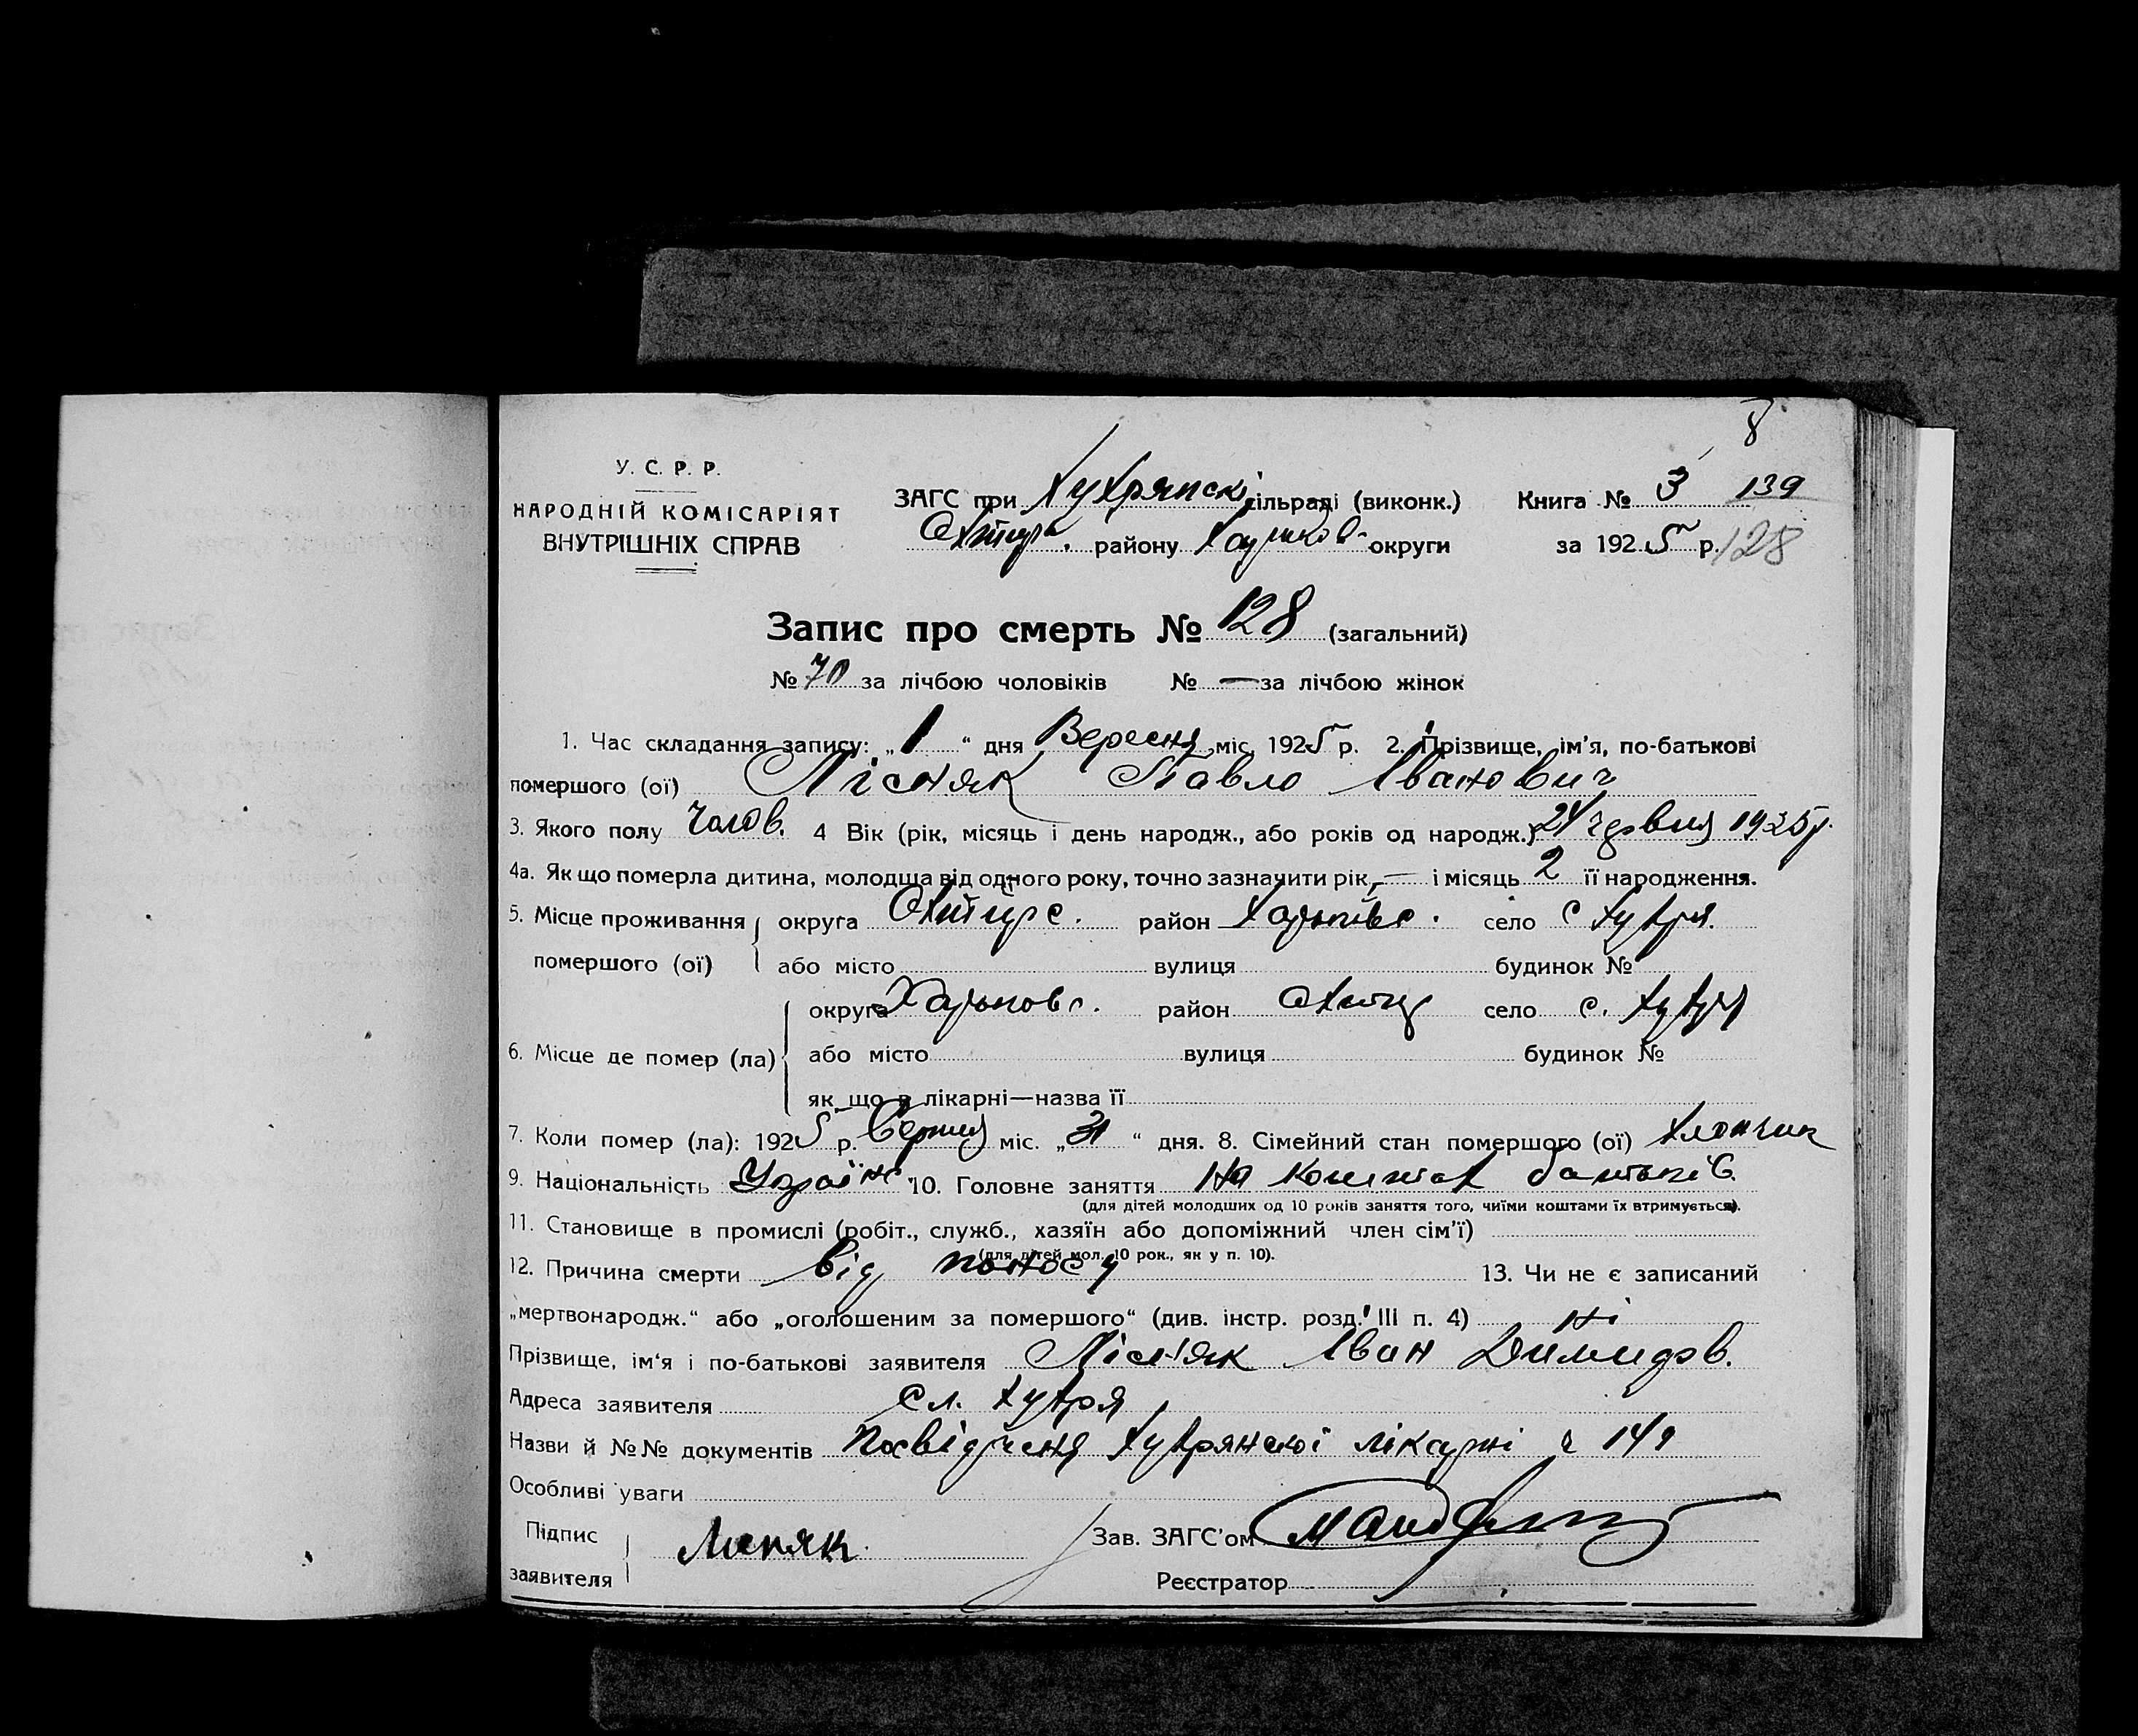 8
У. С. Р. Р.
НАРОДНІЙ КОМІСАРІЯТ
ВНУТРІШНІХ СПРАВ
ЗАГС при Хухрянскі сільраді (виконк.)
Охтир. району Харьков. округи
Книга № 3 139
за 1925 р. 128
Запис про смерть № 128 (загальний)
№ 70 за лічбою чоловіків № — за лічбою жінок
1. Час складання запису: „1“ дня Вересня міс. 1925 р. 2. Прізвище, ім’я, по-батькові
помершого (ої) Лісняк Павло Іванович
3. Якого полу Чолов. 4 Вік (рік, місяць і день народж., або років од народж.) 24 червня 1925 р.
4а. Як що померла дитина, молодща від одного року, точно зазначити рік — і місяць 2 її народження.
5. Місце проживання помершого (ої) округа Охтирс. район Харьківс. село с Хухря.
або місто вулиця будинок №
6. Місце де помер (ла) округа Харьковс. район Охтир село с. Хухря
або місто вулиця будинок №
як що в лікарні—назва її
7. Коли помер (ла): 1925 р. Серпня міс. „31“ дня. 8. Сімейний стан помершого (ої) Хлопчик
9. Національність Україн. 10. Головне заняття На коштах батьків.
(для дітей молодших од 10 років заняття того, чиїми коштами їх втримується).
11. Становище в промислі (робіт., служб., хазяїн або допоміжний член сім’ї)
(для дітей мол. 10 рок., як у п. 10).
12. Причина смерти від поносу 13. Чи не є записаний
„мертвонародж.“ або „оголошеним за помершого“ (див. інстр. розд. III п. 4) Ні
Прізвище, ім‘я і по-батькові заявителя Лісняк Іван Димидов.
Адреса заявителя сл. Хухря
Назви й №№ документів Посвідченя Хухрянскої лікарні ч 149
Особливі уваги
Підпис заявителя Лисняк
Зав. ЗАГС’ом
Реєстратор